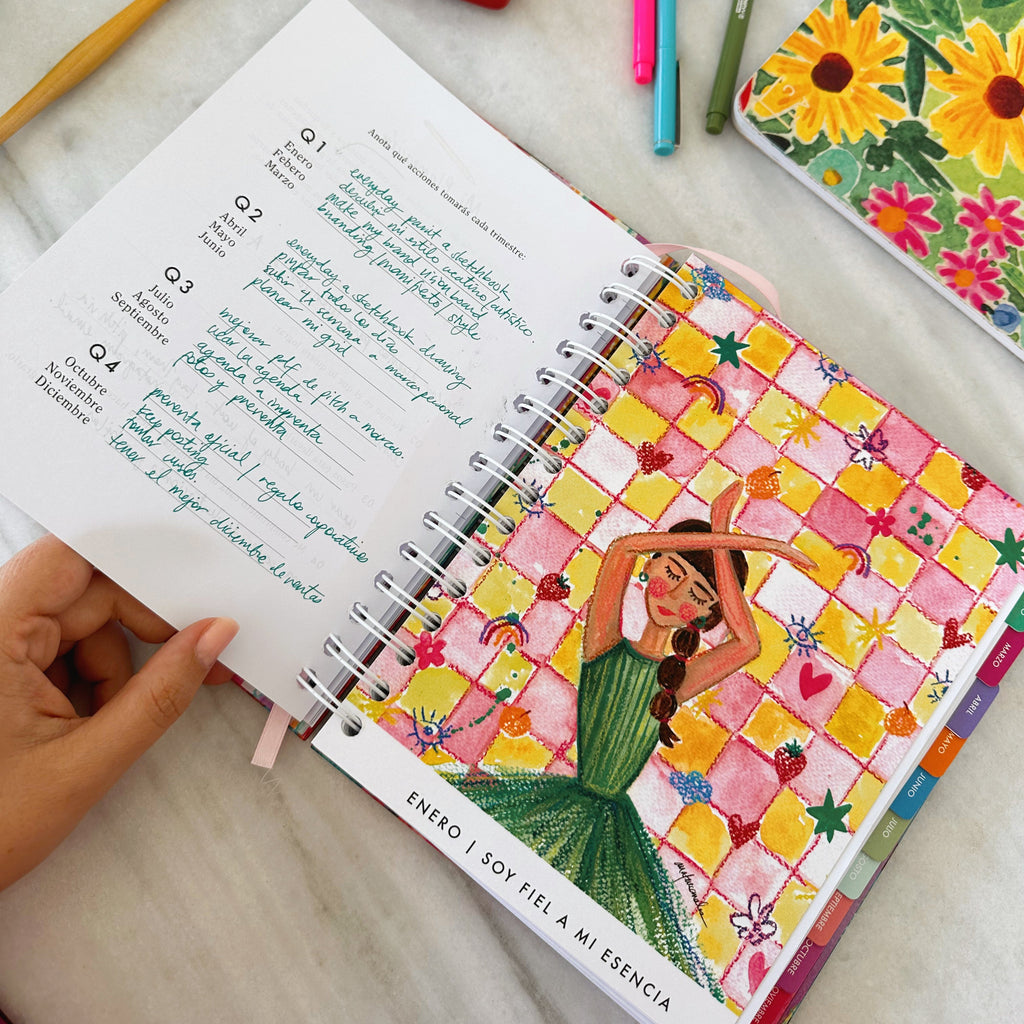 Anota qué acciones tomarás cada trimestre:
Q1
Enero
Febero
Marzo
everyday paint a sketchbook
descubrir mi estilo creativo/artístico
make my brand vision board
branding/manifiesto/style
Q2
Abril
Mayo
Junio
everyday a sketchbook drawing
pintar todos los días
subir 4x semana a marca personal
planear mi grid
Q3
Julio
Agosto
Septiembre
mejorar pdf de pitch a marcas.
usar la agenda
agenda a imprenta
fotos y preventa
Q4
Octubre
Noviembre
Diciembre
preventa oficial / regalos corporativos
keep posting
tomar curso.
tener el mejor diciembre de ventas
ENERO | SOY FIEL A MI ESENCIA
MARZO
ABRIL
MAYO
JUNIO
JULIO
AGOSTO
EPTIEMBRE
OCTUBRE
OVIEMBRE